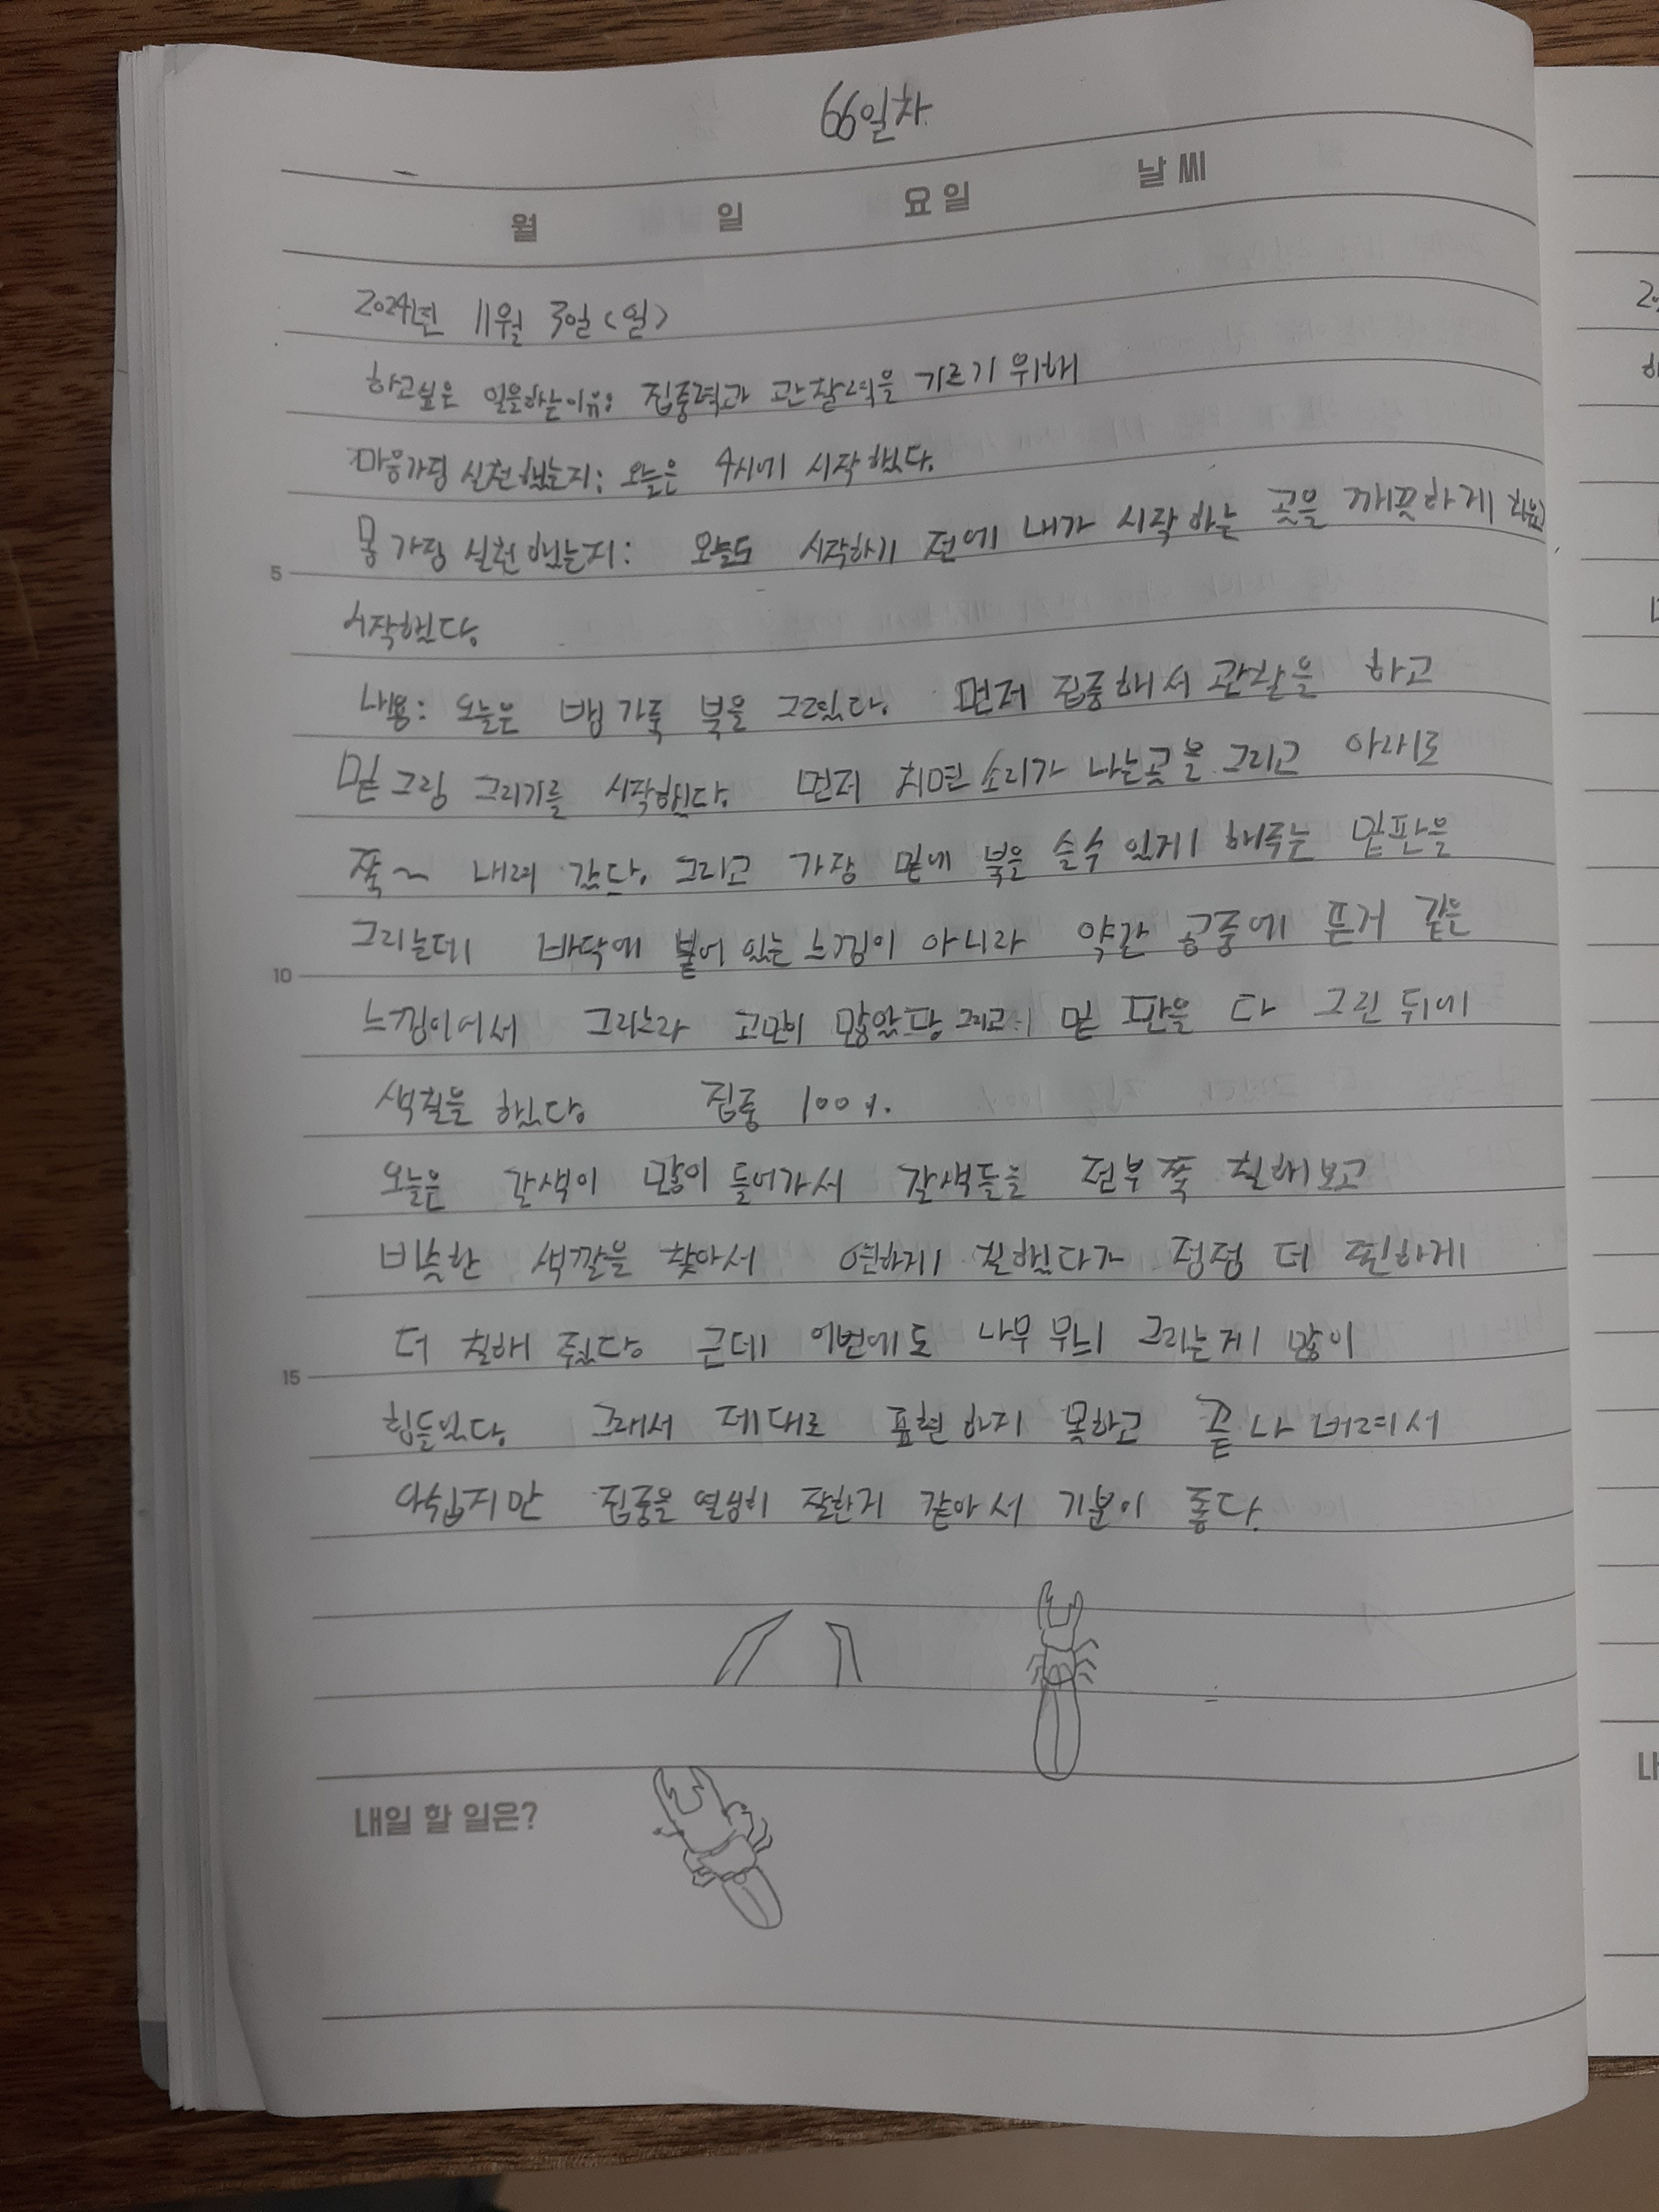 66일차
월 일 요일 날씨
2024년 11월 3일(일)
하고싶은 일을하는이유: 집중력과 관찰력을 기르기 위해
마음가짐 실천했는지: 오늘은 4시에 시작했다.
몸가짐 실천했는지: 오늘도 시작하기 전에 내가 시작하는 곳을 깨끗하게
5
시작했다.
내용: 오늘은 뱀 가죽 북을 그렸다. 먼저 집중해서 관찰을 하고
밑그림 그리기를 시작했다. 먼저 치면 소리가 나는곳을 그리고 아래로
쭉~ 내려 갔다. 그리고 가장 밑에 북을 슬수 있게 해주는 밑판을
그리는데 바닥에 붙어 있는 느낌이 아니라 약간 공중에 뜬거 같은
10
느낌이어서 그리느라 고민이 많았다. 그리고 밑 판을 다 그린 뒤에
색칠을 했다. 집중 100%.
오늘은 갈색이 많이 들어가서 갈색들을 전부 쭉 칠해보고
비슷한 색깔을 찾아서 연하게 칠했다가 점점 더 찐하게
더 칠해 줬다. 근데 이번에도 나무 무늬 그리는게 많이
15
힘들었다. 그래서 제대로 표현하지 못하고 끝나 버려서
아쉽지만 집중을 열심히 잘한거 같아서 기분이 좋다.
내일 할 일은?